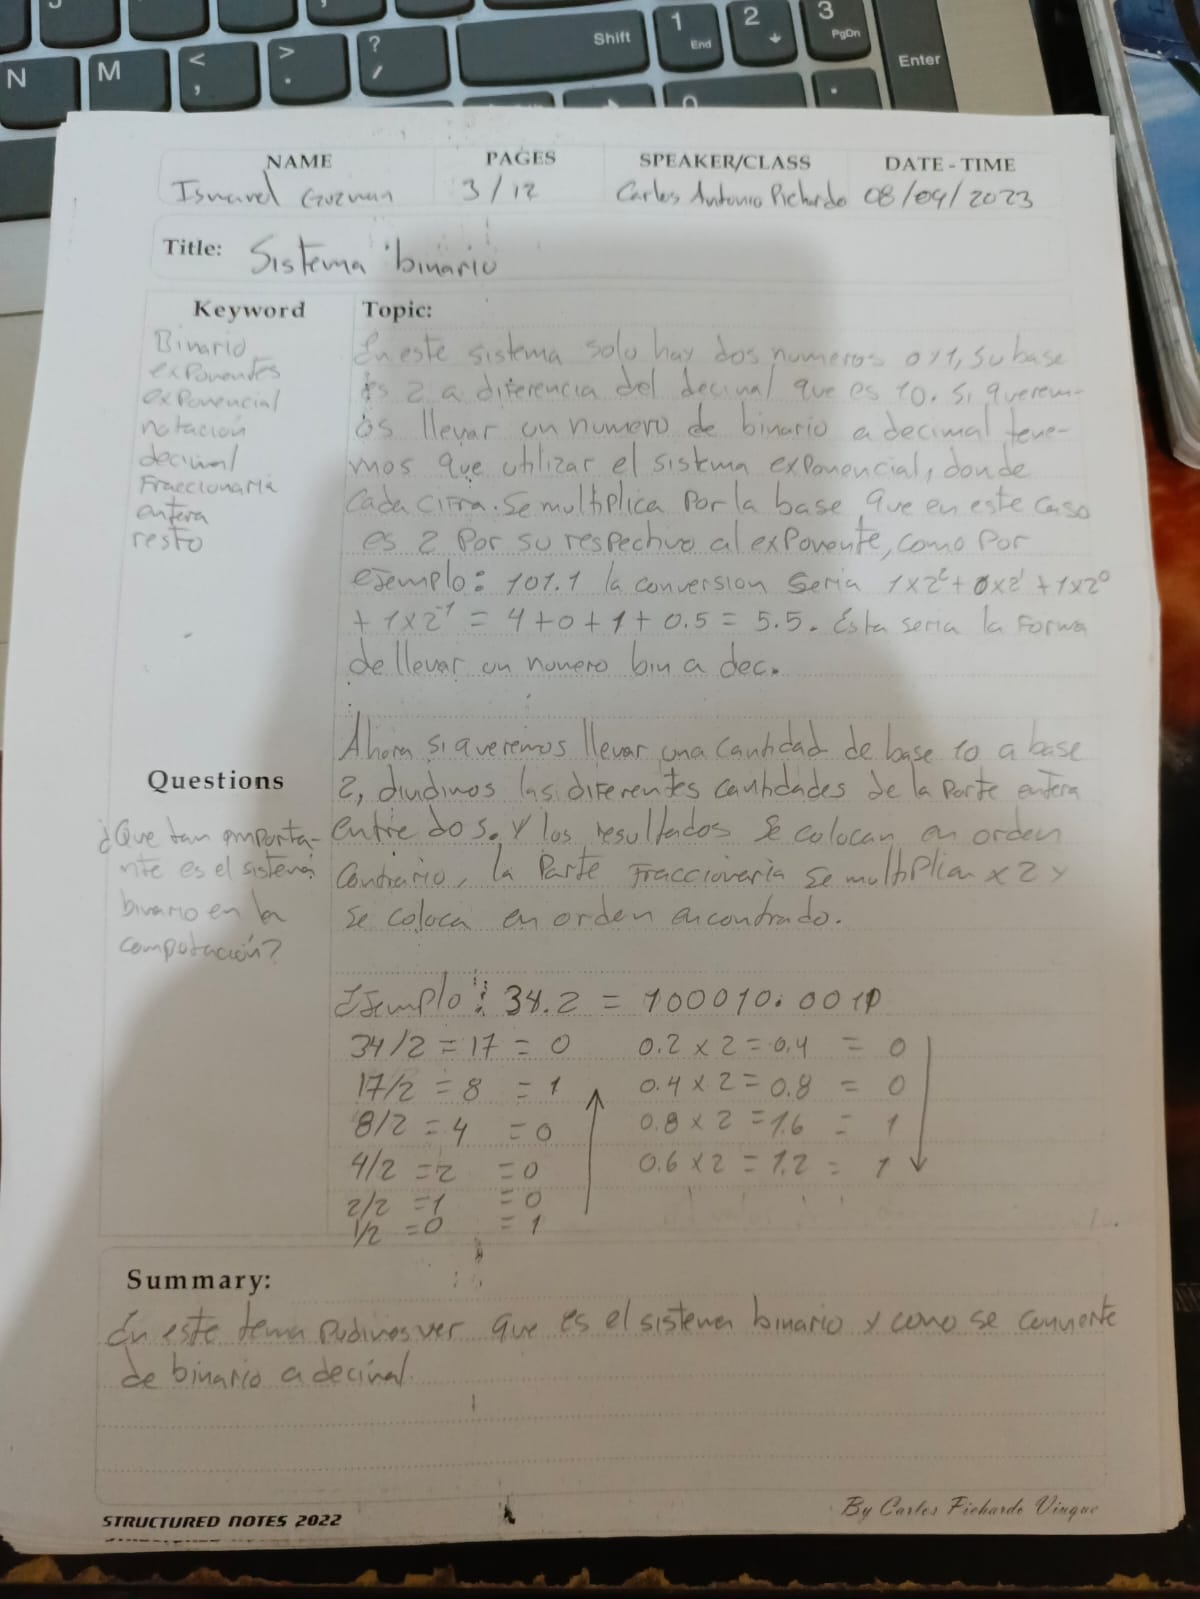 N M < , > . ? / Shift 1 End 2 3 PgDn Enter
NAME PAGES SPEAKER/CLASS DATE - TIME
Ismael Guzman 3/12 Carlos Antonio Pichardo 08/04/2023
Title: Sistema binario
Keyword
Binario
exponentes
exponencial
notación
decimal
Fraccionaria
entera
resto
Topic:
En este sistema solo hay dos numeros 0 y 1, su base
es 2 a diferencia del decimal que es 10. Si querem-
os llevar un numero de binario a decimal tene-
mos que utilizar el sistema exponencial, donde
cada cifra. Se multiplica por la base que en este caso
es 2 Por su respectivo al exponente, como por
ejemplo: 101.1 la conversion seria 1x2² + 0x2¹ + 1x2⁰
+ 1x2⁻¹ = 4+0+1+0.5 = 5.5. Esta seria la forma
de llevar un numero bin a dec.
Ahora si queremos llevar una cantidad de base 10 a base
2, dividimos las diferentes cantidades de la parte entera
entre dos. y los resultados se colocan en orden
contrario, la parte fraccionaria se multiplica x 2 y
se coloca en orden encontrado.
Questions
¿Que tan importa-
nte es el sistema
binario en la
computación?
Ejemplo: 34.2 = 100010.0011
34/2 = 17 = 0 0.2 x 2 = 0.4 = 0
17/2 = 8 = 1 0.4 x 2 = 0.8 = 0
8/2 = 4 = 0 0.8 x 2 = 1.6 = 1
4/2 = 2 = 0 0.6 x 2 = 1.2 = 1
2/2 = 1 = 0
1/2 = 0 = 1
Summary:
En este tema pudimos ver que es el sistema binario y como se convierte
de binario a decimal.
STRUCTURED NOTES 2022
By Carlos Pichardo Vinque